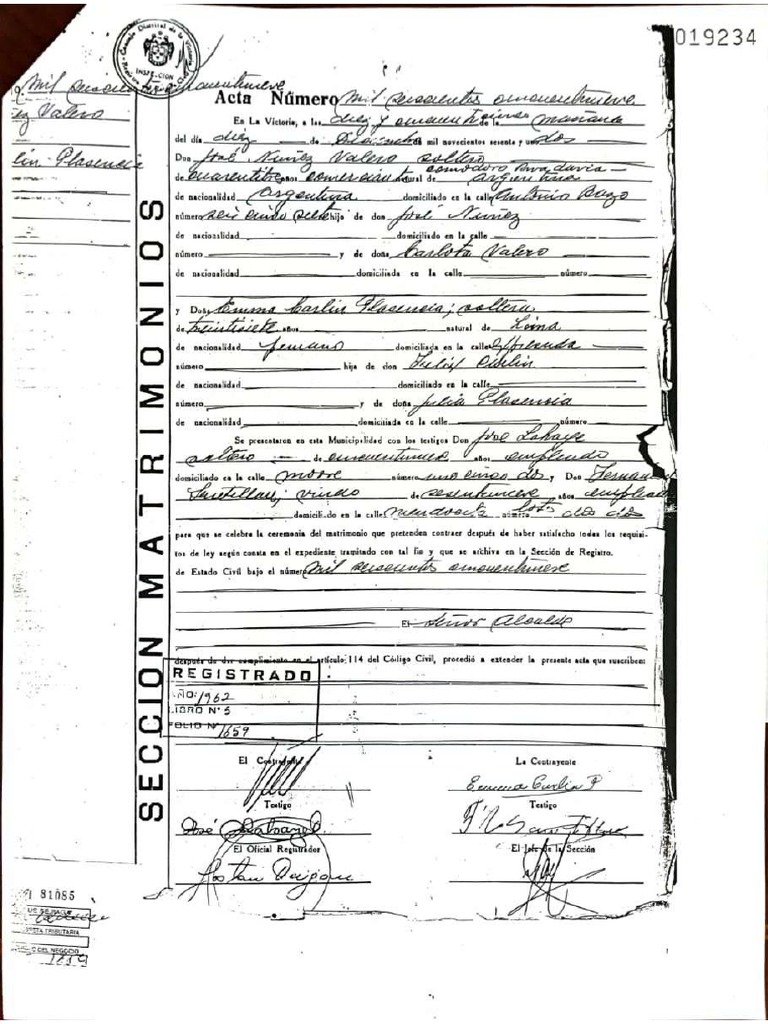 019234
Concejo Distrital de La Victoria
INSPECCION
Mil seiscientos cincuentinueve
ez Valero
lin Plasencia
SECCION MATRIMONIOS
Acta Número Mil seiscientos cincuentinueve
En La Victoria, a las diez y cincuenticinco de la mañana
del día diez de Diciembre de mil novecientos sesenta y un dos
Don José Nuñez Valero soltero
de cuarentitres años comerciante natural de Comodoro Rivadavia — Argentina
de nacionalidad Argentina domiciliado en la calle Antonio Bazo
número seis cinco siete hijo de don José Nuñez
de nacionalidad domiciliado en la calle
número y de doña Carlota Valero
de nacionalidad domiciliada en la calle número
y Doña Emma Carlin Plasencia; soltera
de treintisiete años natural de Lima
de nacionalidad peruana domiciliada en la calle
número hija de don Carlin
de nacionalidad domiciliado en la calle
número y de doña Julia Plasencia
de nacionalidad domiciliada en la calle número
Se presentaron en esta Municipalidad con los testigos Don José
soltero — de cincuentinueve años empleado
domiciliado en la calle Moore número uno cinco dos y Don Fernan
Santillan; viudo de sesentinueve años empleado
domiciliado en la calle número dos dos
para que se celebre la ceremonia del matrimonio que pretenden contraer después de haber satisfecho todos los requisi-
tos de ley según consta en el expediente tramitado con tal fin y que se archiva en la Sección de Registro.
de Estado Civil bajo el número Mil seiscientos cincuentinueve
El Señor Alcalde
después de dar cumplimiento en el artículo 114 del Código Civil, procedió a extender la presente acta que suscriben:
REGISTRADO
AÑO: 1962
LIBRO Nº 5
FOLIO Nº 1659
El Contrayente La Contrayente
Emma Carlin P
Testigo Testigo
José
El Oficial Registrador El Jefe de la Sección
81085
1659